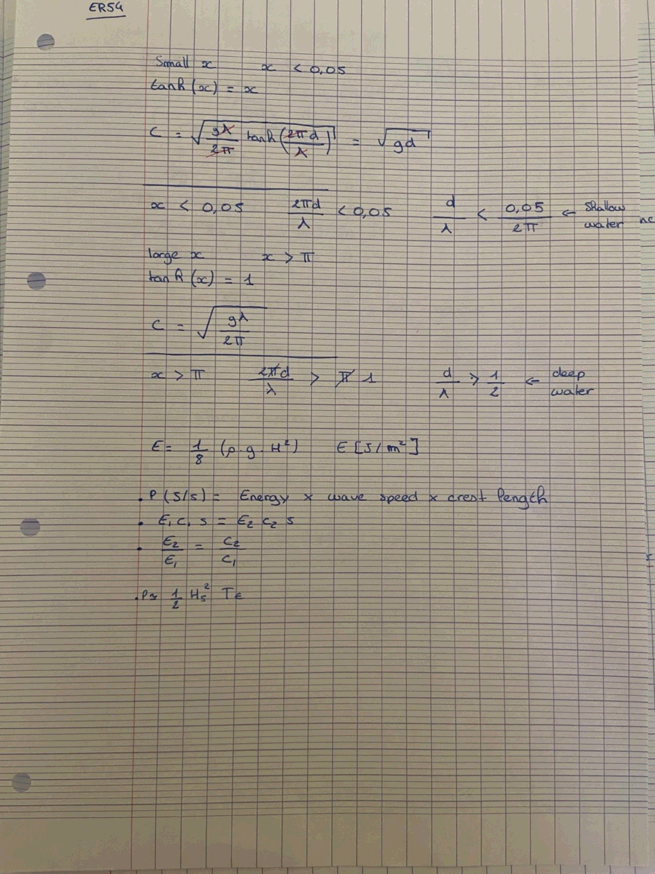 ER54
Small x x < 0,05
tanh (x) = x
C = √(gλ/2π tanh (2πd/λ)) = √gd
x < 0,05 2πd/λ < 0,05 d/λ < 0,05/2π ← Shallow water
large x x > π
tanh (x) = 1
C = √(gλ/2π)
x > π 2πd/λ > π 1 d/λ > 1/2 ← deep water
E = 1/8 (ρ.g.H²) E [J/m²]
. P (J/s) = Energy × wave speed × crest length
. E₁ C₁ s = E₂ C₂ s
. E₂/E₁ = C₂/C₁
. P≈ 1/2 Hs² Te